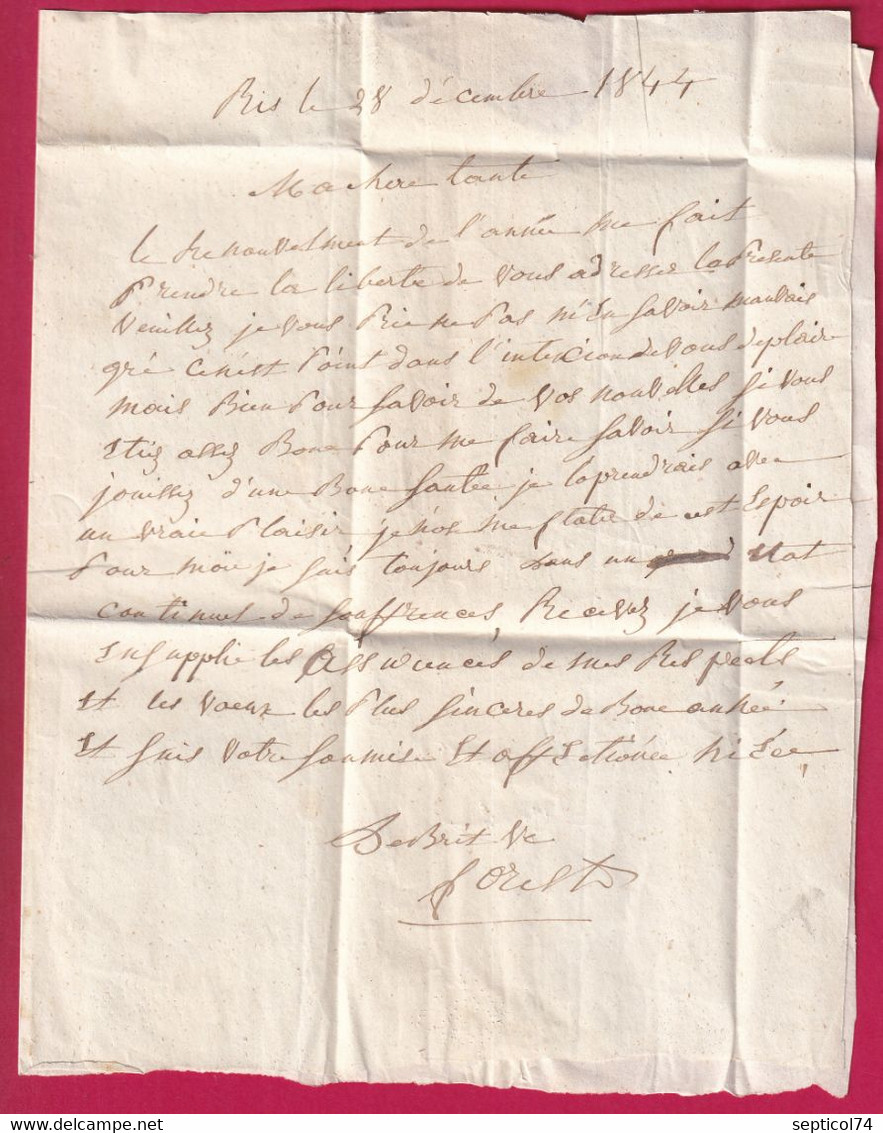 Ris le 28 décembre 1844
Ma chere tante
le renouvelment de l'année me fait
prendre la liberte de vous adresser la presente
veuillez je vous prie ne pas m'en savoir mauvais
gré ce nest point dans l'intencion de vous deplaire
mais bien pour savoir de vos nouvelles si vous
etiez assez bone pour me faire savoir si vous
jouissez d'une bone santée je laprendrais avec
un vraie plaisir je nose me flater de cet espoir
pour moïe je suis toujours dans un etat
continues de souffrences, Recevez je vous
en supplie les assurences de mes Respects
et les voeux les plus sinceres de bone année
et suis votre soumise et affectionée niéce
Debrit Ve
forest
delcampe.net
septicol74